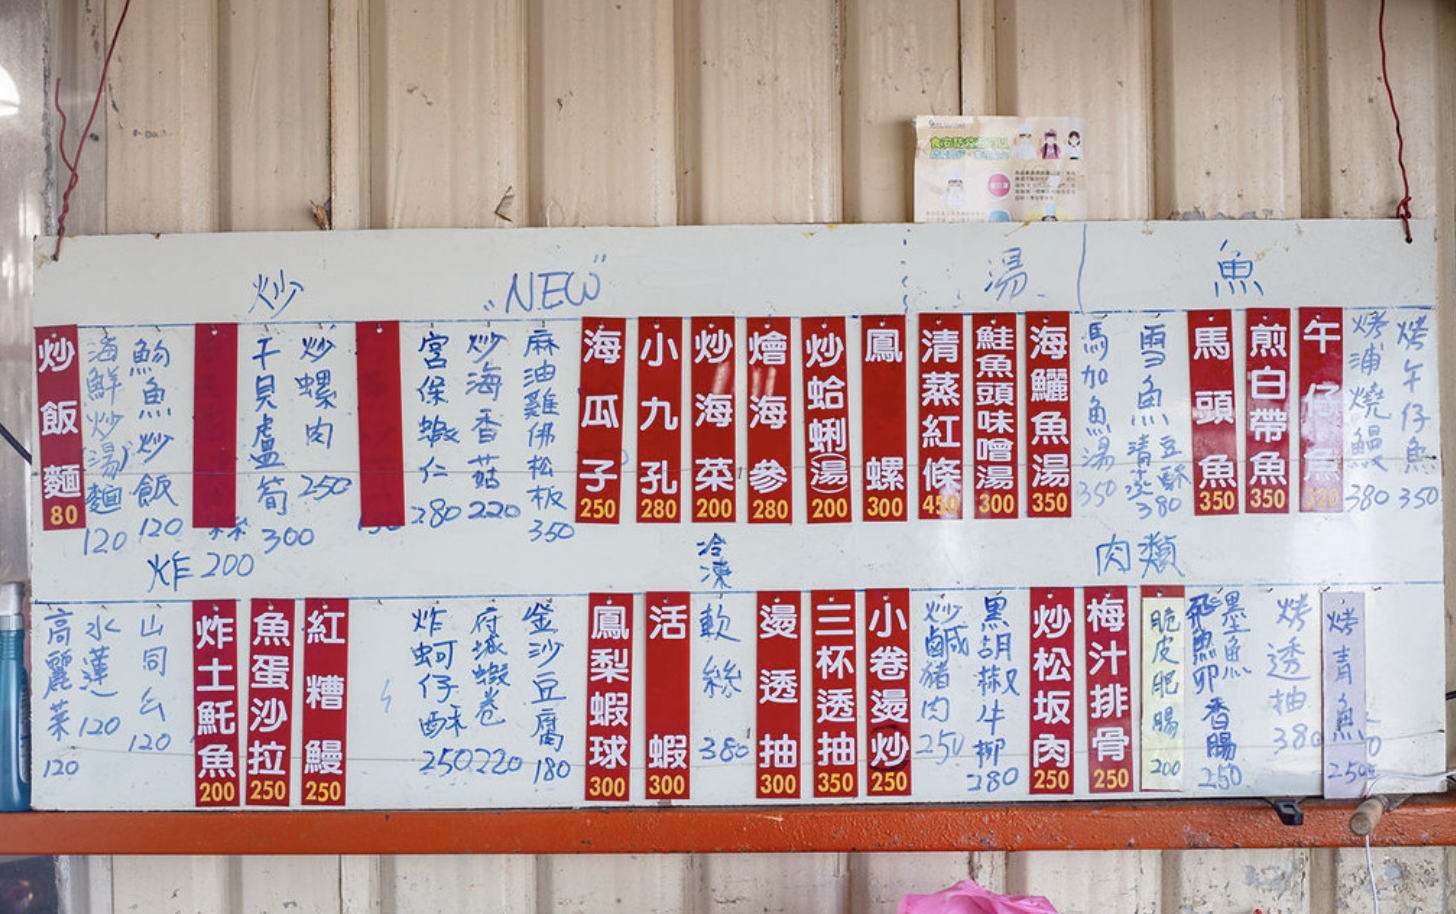 炒
"NEW"
湯
魚
炒飯麵 80
海鮮炒湯麵 120
魩魚炒飯 120
干貝蘆筍 300
炒螺肉 250
宮保蝦仁 280
炒海香菇 220
麻油雞佛松板 350
海瓜子 250
小九孔 280
炒海菜 200
燴海參 280
炒蛤蜊(湯) 200
鳳螺 300
清蒸紅條 450
鮭魚頭味噌湯 300
海鱺魚湯 350
馬加魚湯 350
雪魚清蒸豆酥 380
馬頭魚 350
煎白帶魚 350
午仔魚 320
烤蒲燒鰻 380
烤午仔魚 350
炸 200
冷凍
肉類
高麗菜 120
水蓮 120
山苘 120
炸土魠魚 200
魚蛋沙拉 250
紅糟鰻 250
炸蚵仔酥 250
府城蝦卷 220
金沙豆腐 180
鳳梨蝦球 300
活蝦 300
軟絲 380
燙透抽 300
三杯透抽 350
小卷燙炒 250
炒鹹豬肉 250
黑胡椒牛柳 280
炒松坂肉 250
梅汁排骨 250
脆皮肥腸 200
飛魚卵墨魚香腸 250
烤透抽 380
烤青魚 250